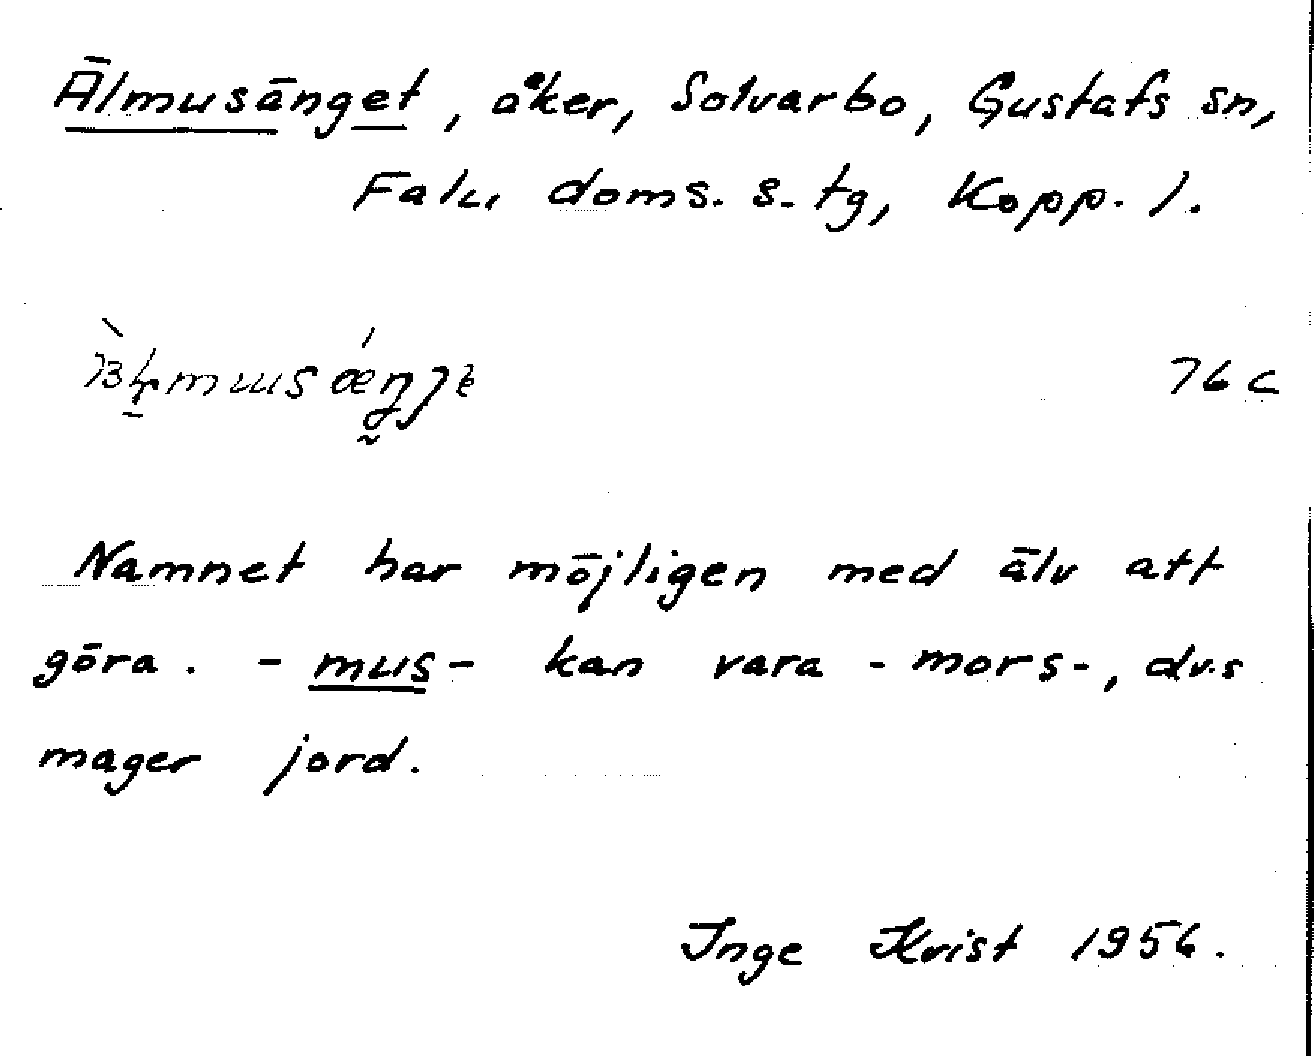 Älmusänget, åker, Solvarbo, Gustafs sn,
Falu doms. s. tg, Kopp. l.
76 c
Namnet har möjligen med älv att
göra. - mus - kan vara - mors-, dvs
mager jord.
Inge Kvist 1956.